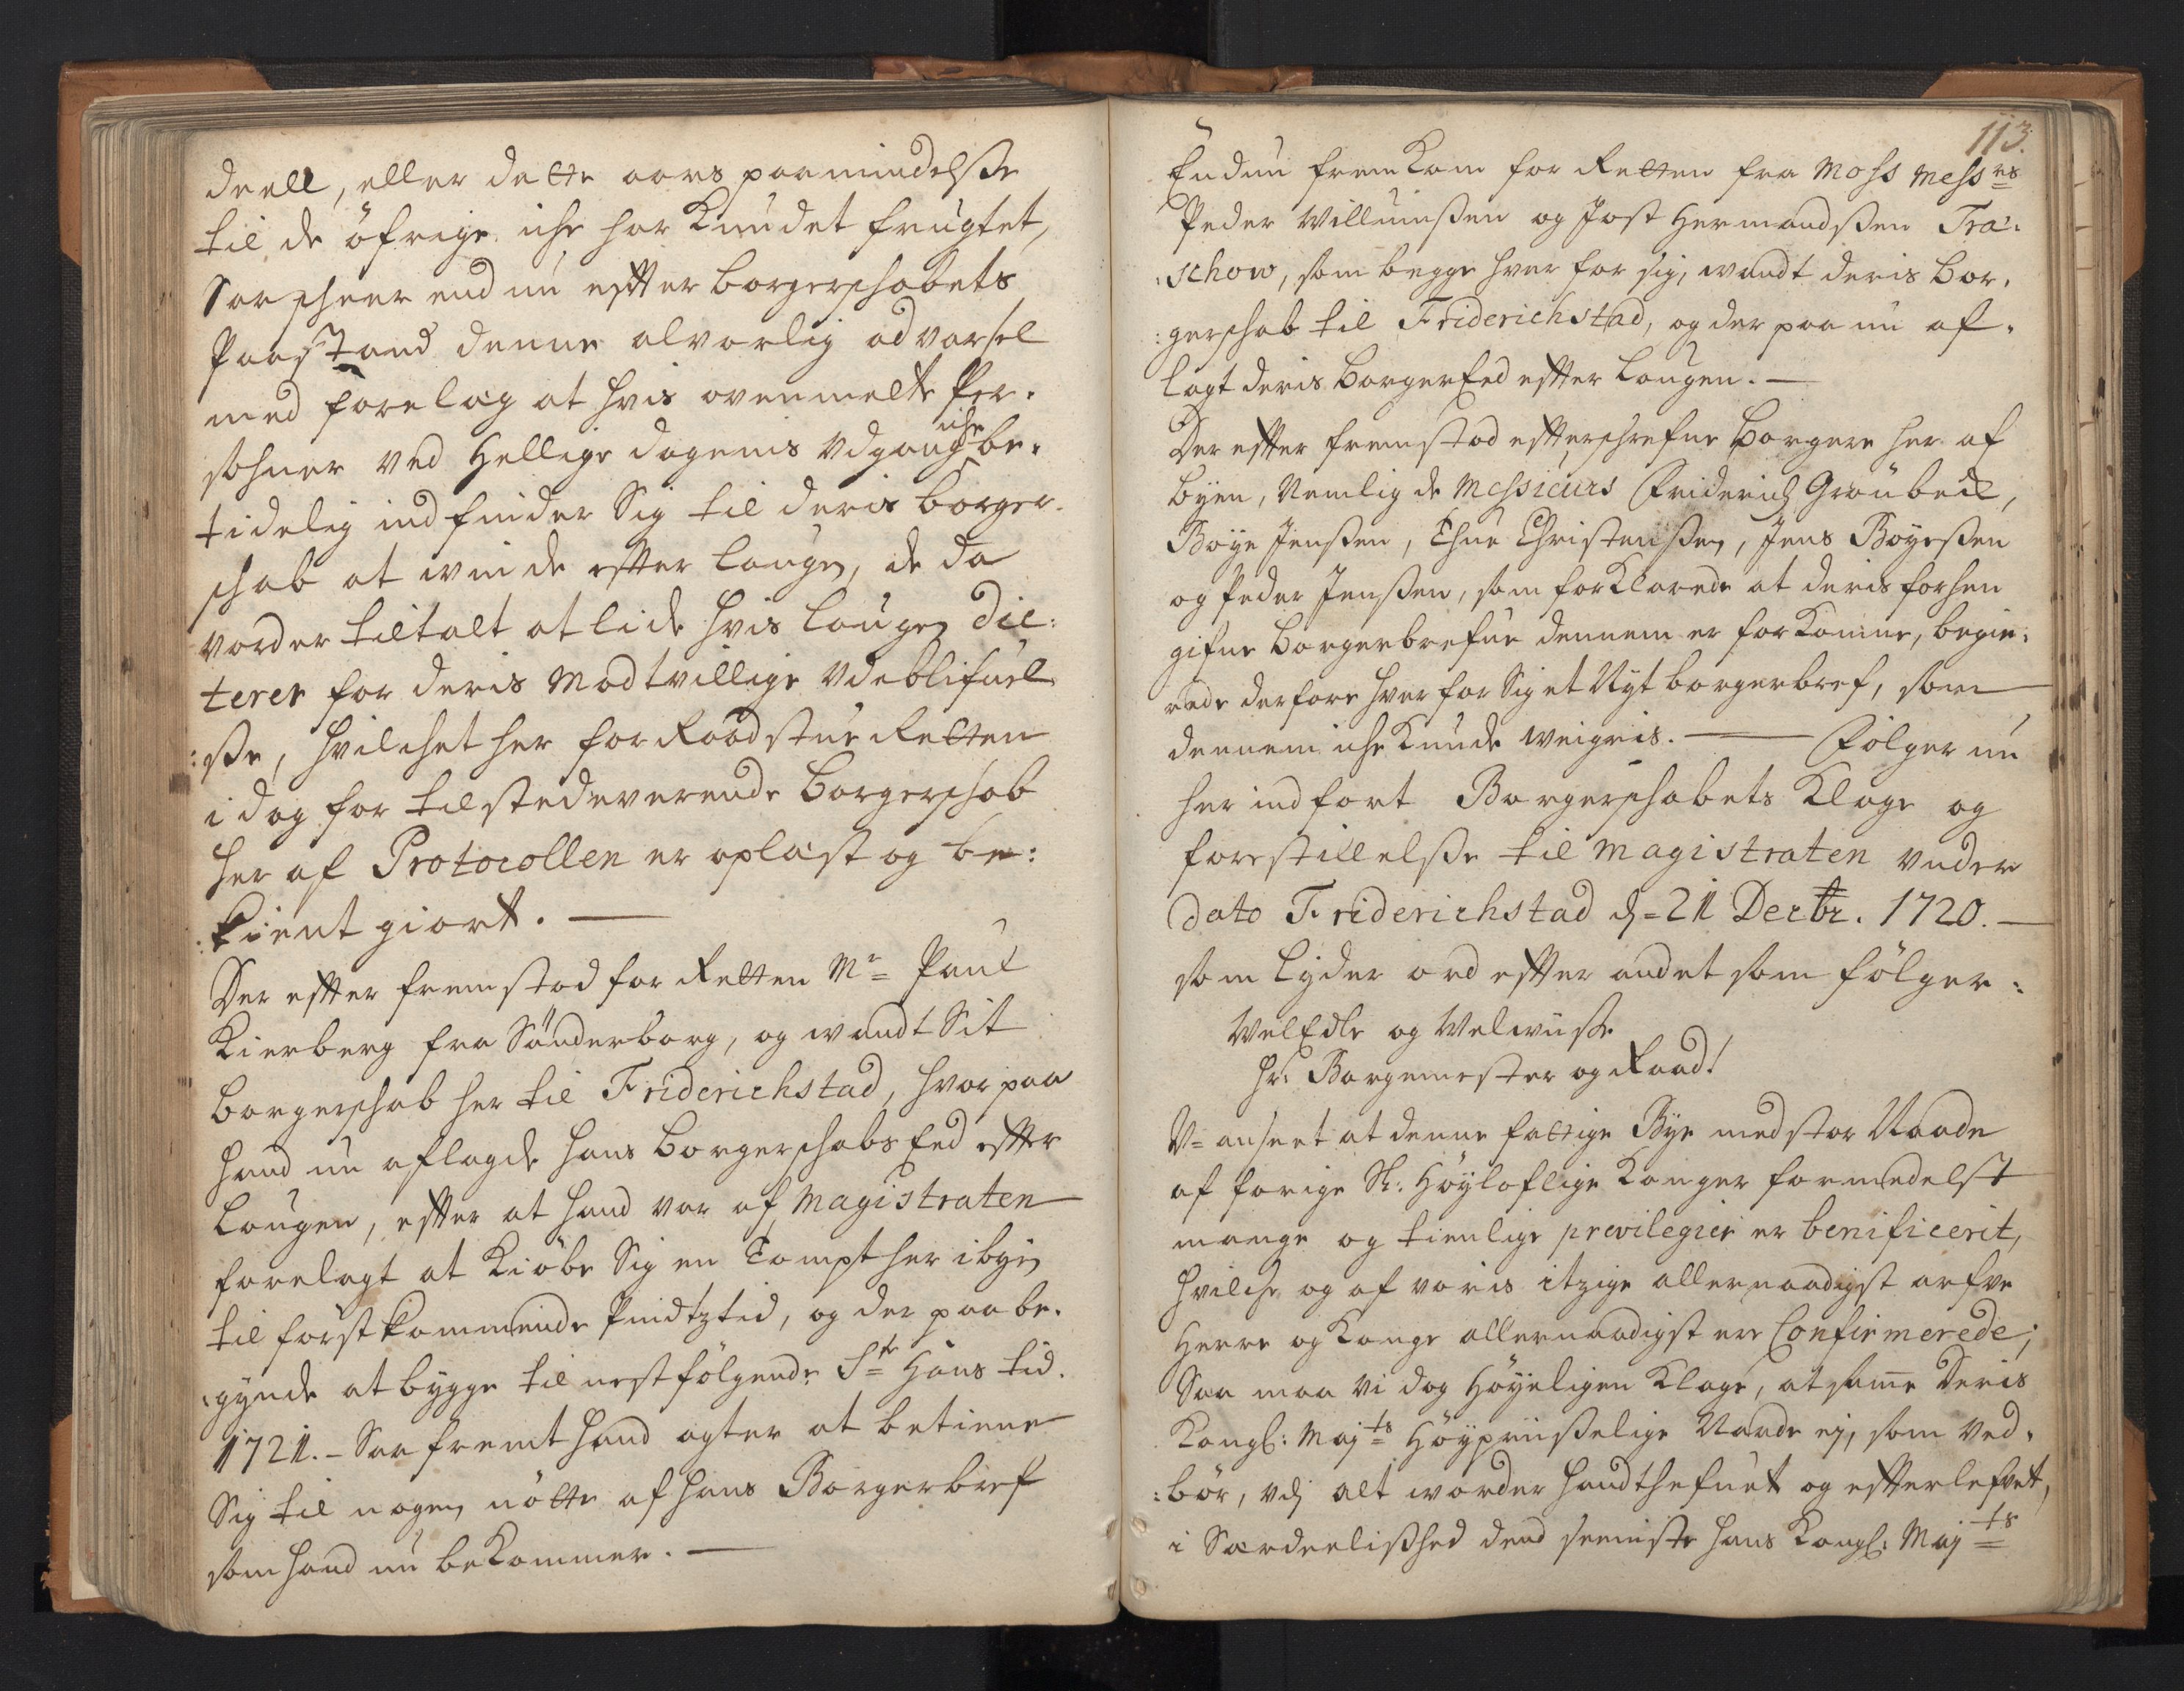 deell, eller dette aars paamindelsse
til de öfrige iche har kundet frugtet,
Saa scheer end nu effter borgerschabets
Paastand denne alvorlig advarsel
med forelag at hvis ovenmelte Per-
sohner ved Hellige dagenis Udgang iche be-
tidelig indfinder Sig til deris borger-
schab at winde effter Lougen, de da
vorder tiltalt at lide hvis Lougen dic:
terer for deris Modtvillige Udeblifuel
:sse, hvilchet her for Raadstue Retten
i dag for tilstedeverende borgerschab
her af Protocollen er oplæst og be:
:kient giort. —
Der effter fremstod for Retten Mr= Paul
Kierberg fra Sönderborg, og wandt Sit
borgerschab her til Friderichstad, hvor paa
hand nu aflagde hans borgerschabs Eed effter
Lougen, effter at hand var af Magistraten
forelagt at kiöbe Sig en Tompt her i byen
til förstkommende Pindtztid, og der paa be-
:gynde at bygge til nestfölgende Ste Hans tid.
1721. - Saa fremt hand agter at betiene
Sig til nogen nötte af hans Borgerbref
som hand nu bekommer. —
113.
Endnu fremkom for Retten fra Moss Messrs
Peder Willumssen og Jost Hermandssen Tra:
:schow, som begge hver for sig, wandt deris bor-
:gerschab til Friderichstad, og der paa nu af-
lagt deris borger Eed effter Lougen. —
Der effter fremstod effterschrefne borgere her af
byen, Nemlig de Messieurs Friderich Graubeck,
Boye Jenssen, Thue Christenssen, Jens Boyessen
og Peder Jenssen, som forklarede at deris forhen
gifne borgerbrefue dennem er forkomne, begie:
rede derfore hver for Sig et Nyt borgerbref, som
dennem iche kunde weigris. — Fölger nu
her indfört Borgerschabets Klage og
forestillelsse til Magistraten under
dato Friderichstad d= 21 Decbr. 1720. —
som lyder ord effter andet som fölger:
WelEdle og Welwiisse
Hr: Borgemester og Raad!
U= anseet at denne fattige Bye med stor Naade
af forige Sl: Höyloflige Konger formedelst
mange og tienlige previlegier er benificerit,
hvilche og af voris itzige allernaadigst arfve
Herre og Konge allernaadigst ere Confirmerede;
Saa maa vi dog Höyeligen klage, at samme Deris
Kongl: Majts Höypriisselige Naade ej, som ved-
:bör, udj alt worder handthefuet og effterlefvet,
i Særdeelisshed dend seeniste hans Kongl: Majts